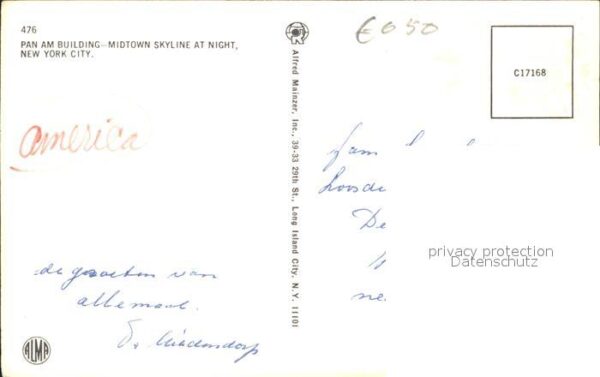 476
PAN AM BUILDING—MIDTOWN SKYLINE AT NIGHT,
NEW YORK CITY.
america
de groeten van
allemaal.
ALMA
Alfred Mainzer, Inc., 39-33 29th St., Long Island City, N.Y. 11101
€ 0 50
C17168
fam
Loosd
De
ne
privacy protection
Datenschutz